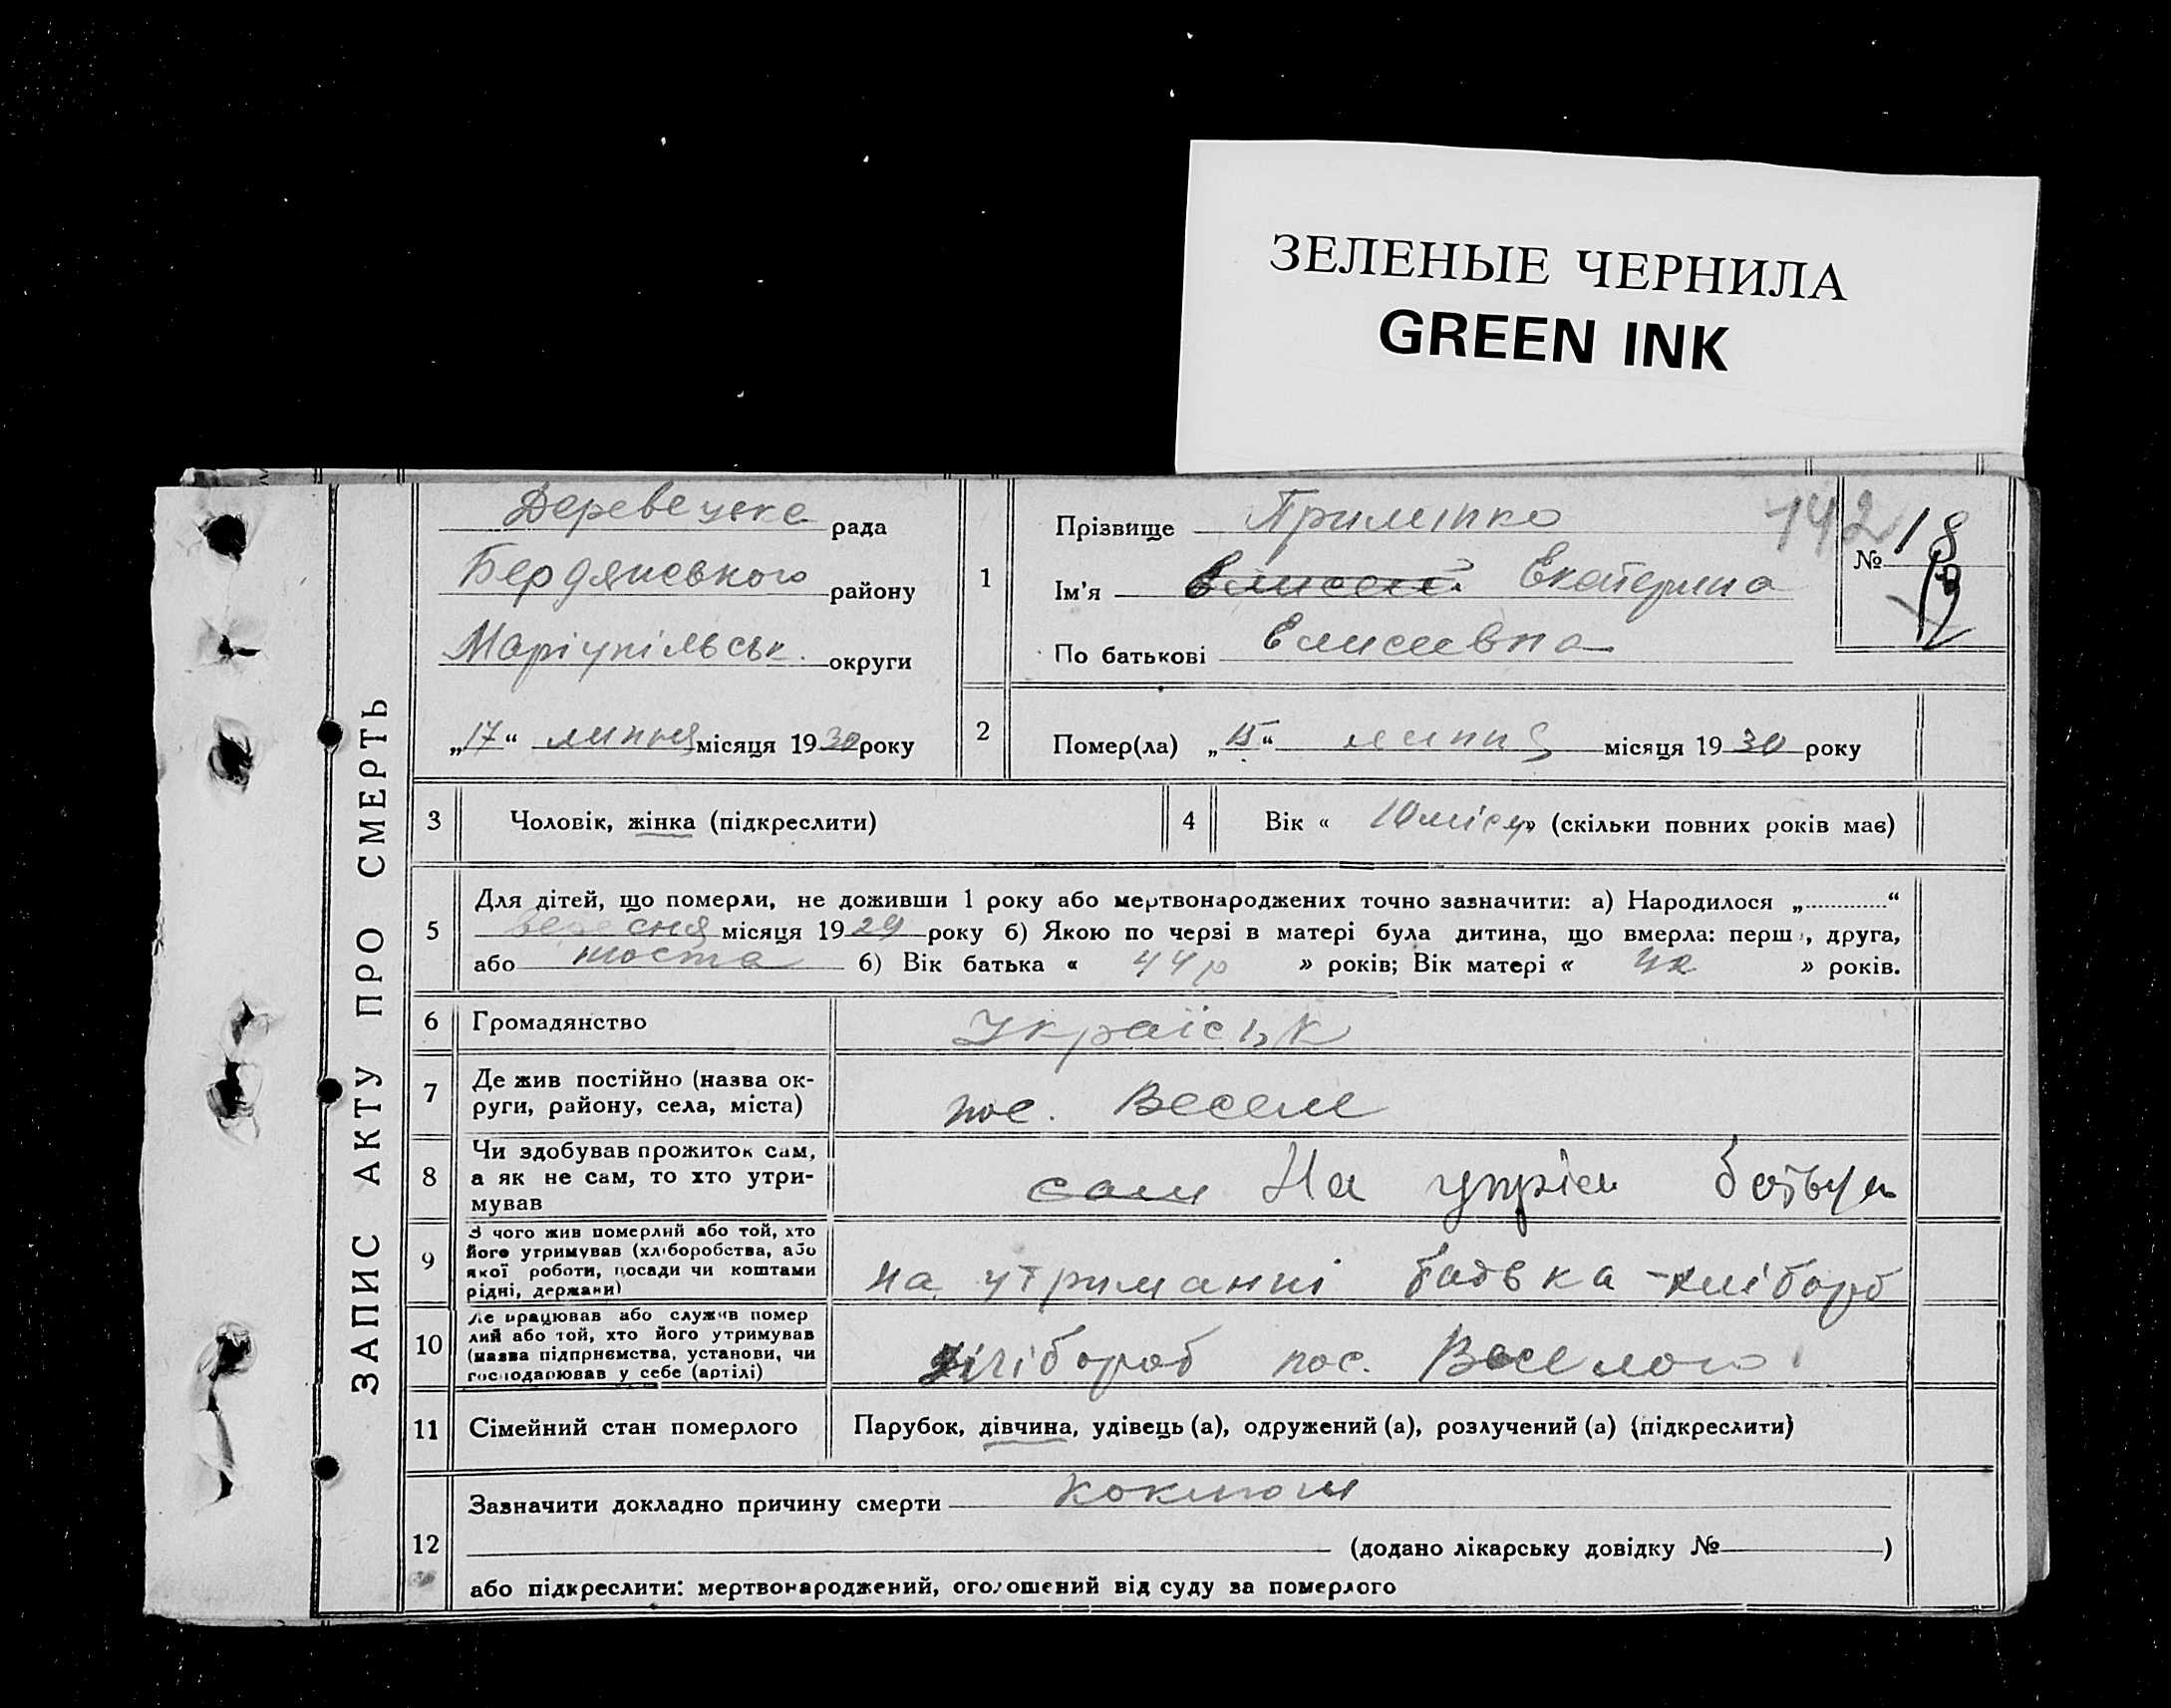 ЗЕЛЕНЫЕ ЧЕРНИЛА
GREEN INK
ЗАПИС АКТУ ПРО СМЕРТЬ
рада
Бердянського району
Маріупільськ. округи
„17“ липня місяця 1930 року
1
Прізвище
Ім'я Екатерина
По батькові
142
№ 18
2
Помер(ла) „15“ липня місяця 1930 року
3
Чоловік, жінка (підкреслити)
4
Вік « 10 місяц » (скільки повних років має)
5
Для дітей, що померли, не доживши 1 року або мертвонароджених точно зазначити: а) Народилося „.............“
вересня місяця 1929 року б) Якою по черзі в матері була дитина, що вмерла: перша, друга,
або шоста б) Вік батька « 44 р » років; Вік матері « 42 » років.
6
Громадянство
Україськ
7
Де жив постійно (назва ок-
руги, району, села, міста)
пос. Весели
8
Чи здобував прожиток сам,
а як не сам, то хто утри-
мував
сам На
9
З чого жив померлий або той, хто
його утримував (хліборобства, або
якої роботи, посади чи коштами
рідні, держави)
на утриманні батька - хлібороб
10
Де працював або служив помер
лий або той, хто його утримував
(назва підприємства, установи, чи
господарював у себе (артілі)
хлібороб пос. Веселого
11
Сімейний стан померлого
Парубок, дівчина, удівець (а), одружений (а), розлучений (а) (підкреслити)
12
Зазначити докладно причину смерти коклюш
(додано лікарську довідку № )
або підкреслити: мертвонароджений, оголошений від суду за померлого